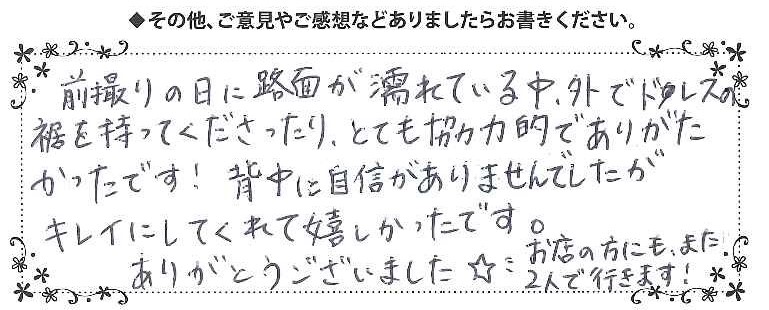 ◆その他、ご意見やご感想などありましたらお書きください。
前撮りの日に路面が濡れている中、外でドレスの
裾を持ってくださったり、とても協力的でありがた
かったです！背中に自信がありませんでしたが
キレイにしてくれて嬉しかったです。
ありがとうございました☆ミ
お店の方にも、また
2人で行きます！